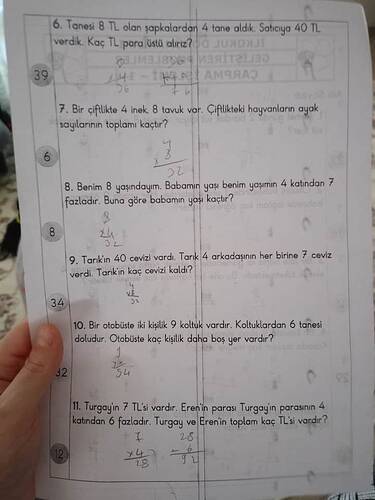 6. Tanesi 8 TL olan şapkalardan 4 tane aldık. Satıcıya 40 TL
verdik. Kaç TL para üstü alırız?
39
7. Bir çiftlikte 4 inek, 8 tavuk var. Çiftlikteki hayvanların ayak
sayılarının toplamı kaçtır?
6
4
x 8
32
8. Benim 8 yaşındayım. Babamın yaşı benim yaşımın 4 katından 7
fazladır. Buna göre babamın yaşı kaçtır?
8
8
x4
32
9. Tarık'ın 40 cevizi vardı. Tarık 4 arkadaşının her birine 7 ceviz
verdi. Tarık'ın kaç cevizi kaldı?
34
10. Bir otobüste iki kişilik 9 koltuk vardır. Koltuklardan 6 tanesi
doludur. Otobüste kaç kişilik daha boş yer vardır?
92
11. Turgay'ın 7 TL'si vardır. Eren'in parası Turgay'ın parasının 4
katından 6 fazladır. Turgay ve Eren'in toplam kaç TL'si vardır?
12
7 28
x4 - 6
28 92